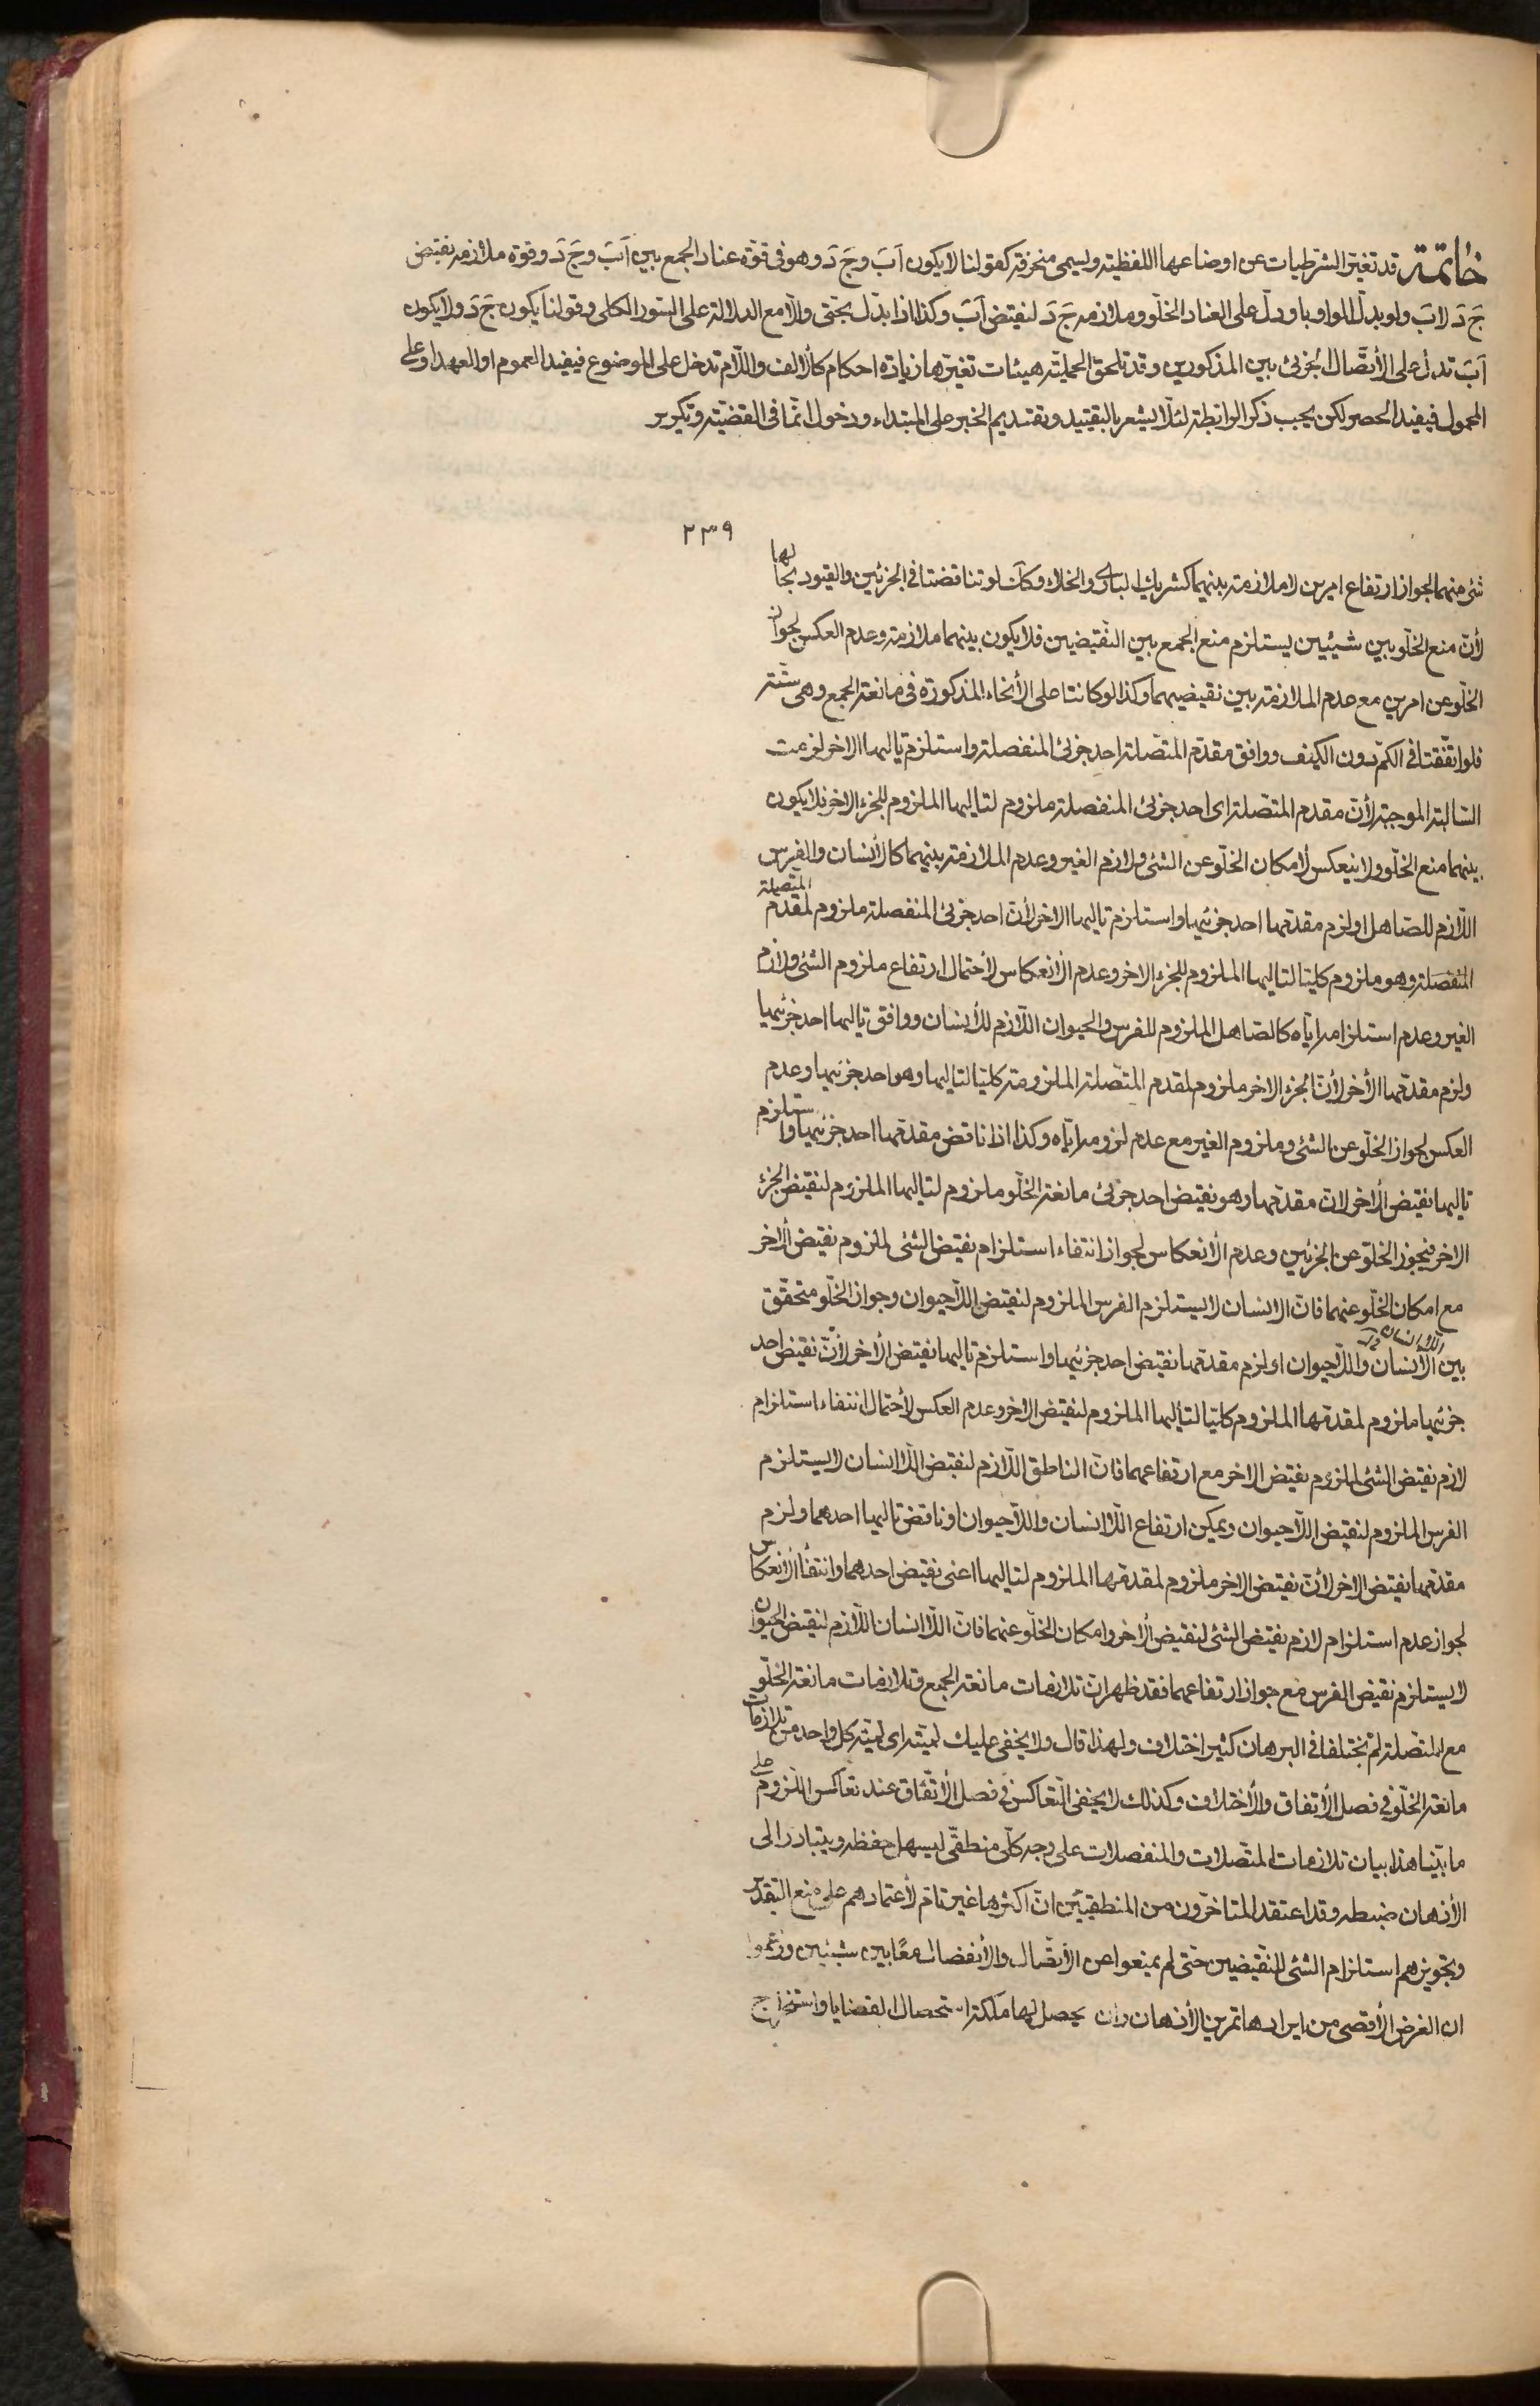 خاتمة قد تغير الشرطيات عن اوضاعها اللفظية ويسمى منحرفة كقولنا لا يكون اَبَ وجَ دَ وهو فى قوّة عناد الجمع بين اَبَ وجَ دَ وقوة ملازمه نقيض
جَ دَ لابَ ولو بدّل الواو باو دلّ على العناد الخلّو وملازمه جَ دَ لنقيض اَبَ وكذا اذا بدّل بحتّى والّا مع الدلالة على السّور الكلى وقولنا يكون جَ دَ ولا يكون
اَبَ تدل على الأتصّال الجزئ بين المذكورين وقد تلحق الحمليّة هيئات تغيّرها زيادة احكام كالألف واللّام تدخل على الموضوع فيفيد العموم او العهد او على
المحمول فيفيد الحصر لكن يجب ذكر الرابطة لئلّا يشعر بالتقييد وتقديم الخبر على المبتداء ودخول انّما فى القضيّة وتكرير
٢٣٩
شئ منهما لجواز ارتفاع امرين لا ملازمة بينهما كشريك البارى والخلاء وكان لو تناقضتا فى الجزئين والقيود بحالها
لأنّ منع الخلّو بين شيئين يستلزم منع الجمع بين النّقيضين فلا يكون بينهما ملازمة وعدم العكس لجواز
الخلّو عن امرين مع عدم الملازمة بين نقيضيهما وكذا لو كانتا على الأنحاء المذكورة فى مانعة الجمع وهى ستّة
فلو اتّفقتا فى الكمّ دون الكيف ووافق مقدّم المتّصلة احد جزئ المنفصلة واستلزم تاليها الاخر لزمت
السّالبة الموجبة لأنّ مقدم المتّصلة اى احد جزئ المنفصلة ملزوم لتاليها الملزوم للجزء الاخر فلا يكون
بينهما منع الخلّو ولا ينعكس لأمكان الخلّو عن الشئ ولازم الغير وعدم الملازمة بينهما كالأنسان والفرس
اللّازم للصّاهل او لزم مقدّمها احد جزئيها واستلزم تاليها الاخر لأنّ احد جزئ المنفصلة ملزوم لمقدم المتّصلة
المنفصلة وهو ملزوم كليّا لتاليها الملزوم للجزء الاخر وعدم الأنعكاس لأحتمال ارتفاع ملزوم الشئ ولازم
الغير وعدم استلزامه ايّاه كالصّاهل الملزوم للفرس والحيوان اللّازم للأنسان ووافق تاليها احد جزئيها
ولزم مقدّمها الأخر لأنّ الجزء الاخر ملزوم لمقدم المتّصلة الملزومة كليّا لتاليها وهو احد جزئيها وعدم
العكس لجواز الخلّو عن الشئ وملزوم الغير مع عدم لزومه ايّاه وكذا اذا ناقض مقدّمها احد جزئيها واستلزم
تاليها نقيض الأخر لانّ مقدّمها وهو نقيض احد جزئ مانعة الخلّو ملزوم لتاليها الملزوم لنقيض الجزء
الاخر فيجوز الخلّو عن الجزئين وعدم الأنعكاس لجواز انتفاء استلزام نقيض الشئ لملزوم نقيض الأخر
مع امكان الخلّو عنهما فانّ الانسان لا يستلزم الفرس الملزوم لنقيض اللّاحيوان وجواز الخلّو متحقّق
بين اللّاانسان واللّاحيوان او لزم مقدّمها نقيض احد جزئيها واستلزم تاليها نقيض الأخر لأنّ نقيض احد
جزئيها ملزوم لمقدمها الملزوم كليّا لتاليها الملزوم لنقيض الاخر وعدم العكس لأحتمال انتفاء استلزام
لازم نقيض الشئ لملزوم نقيض الاخر مع ارتفاعهما فانّ الناطق اللّازم لنقيض اللّاانسان لا يستلزم
الفرس الملزوم لنقيض اللّاحيوان ويمكن ارتفاع اللّاانسان واللّاحيوان او ناقض تاليها احدهما ولزم
مقدّمها نقيض الاخر لأنّ نقيض الاخر ملزوم لمقدمها الملزوم لتاليها اعنى نقيض احدهما وانتفأ الأنعكاس
لجواز عدم استلزام لازم نقيض الشئ لنقيض الأخر وامكان الخلّو عنهما فانّ اللّاانسان اللّازم لنقيض الحيوان
لا يستلزم نقيض الفرس مع جواز ارتفاعهما فقد ظهر انّ تلازمات مانعة الجمع وتلازمات مانعة الخلّو
مع المتّصلة لم يختلفا فى البرهان كثير اختلاف ولهذا قال ولا يخفى عليك لميّته اى لميّة كلّ واحد من تلازمات
مانعة الخلّو فى فصل الأتفاق والأختلاف وكذلك لا يخفى التّعاكس فى فصل الأتّفاق عند تعاكس اللّزوم على
ما بيّنا هذا بيان تلازمات المتّصلات والمنفصلات على وجه كلّى منطقىّ ليسهل حفظه ويتبادر الى
الأذهان ضبطه وقد اعتقد المتاخّرون من المنطقيّين انّ اكثرها غير تامّ لأعتمادهم على منع التقدير
وتجويزهم استلزام الشئ للنّقيضين حتّى لم يمنعوا عن الأتصّال والأنفصال معًا بين شيئين وزعموا
ان الغرض الأقصى من ايرادها تمرين الأذهان وان يحصل لها ملكة استحصال القضايا واستخراج